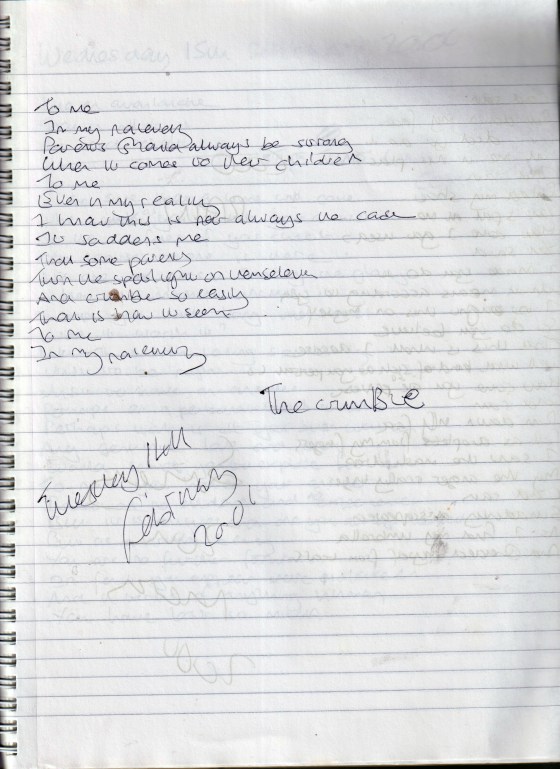 To me
In my naievety
Parents should always be strong
When it comes to their children
To me
Even in my reality
I know this is not always the case
It saddens me
That some parents
Turn the spotlight on themselves
And crumble so easily
That is how it seems
To me
In my naievety
The crumBLE
Tuesday
February